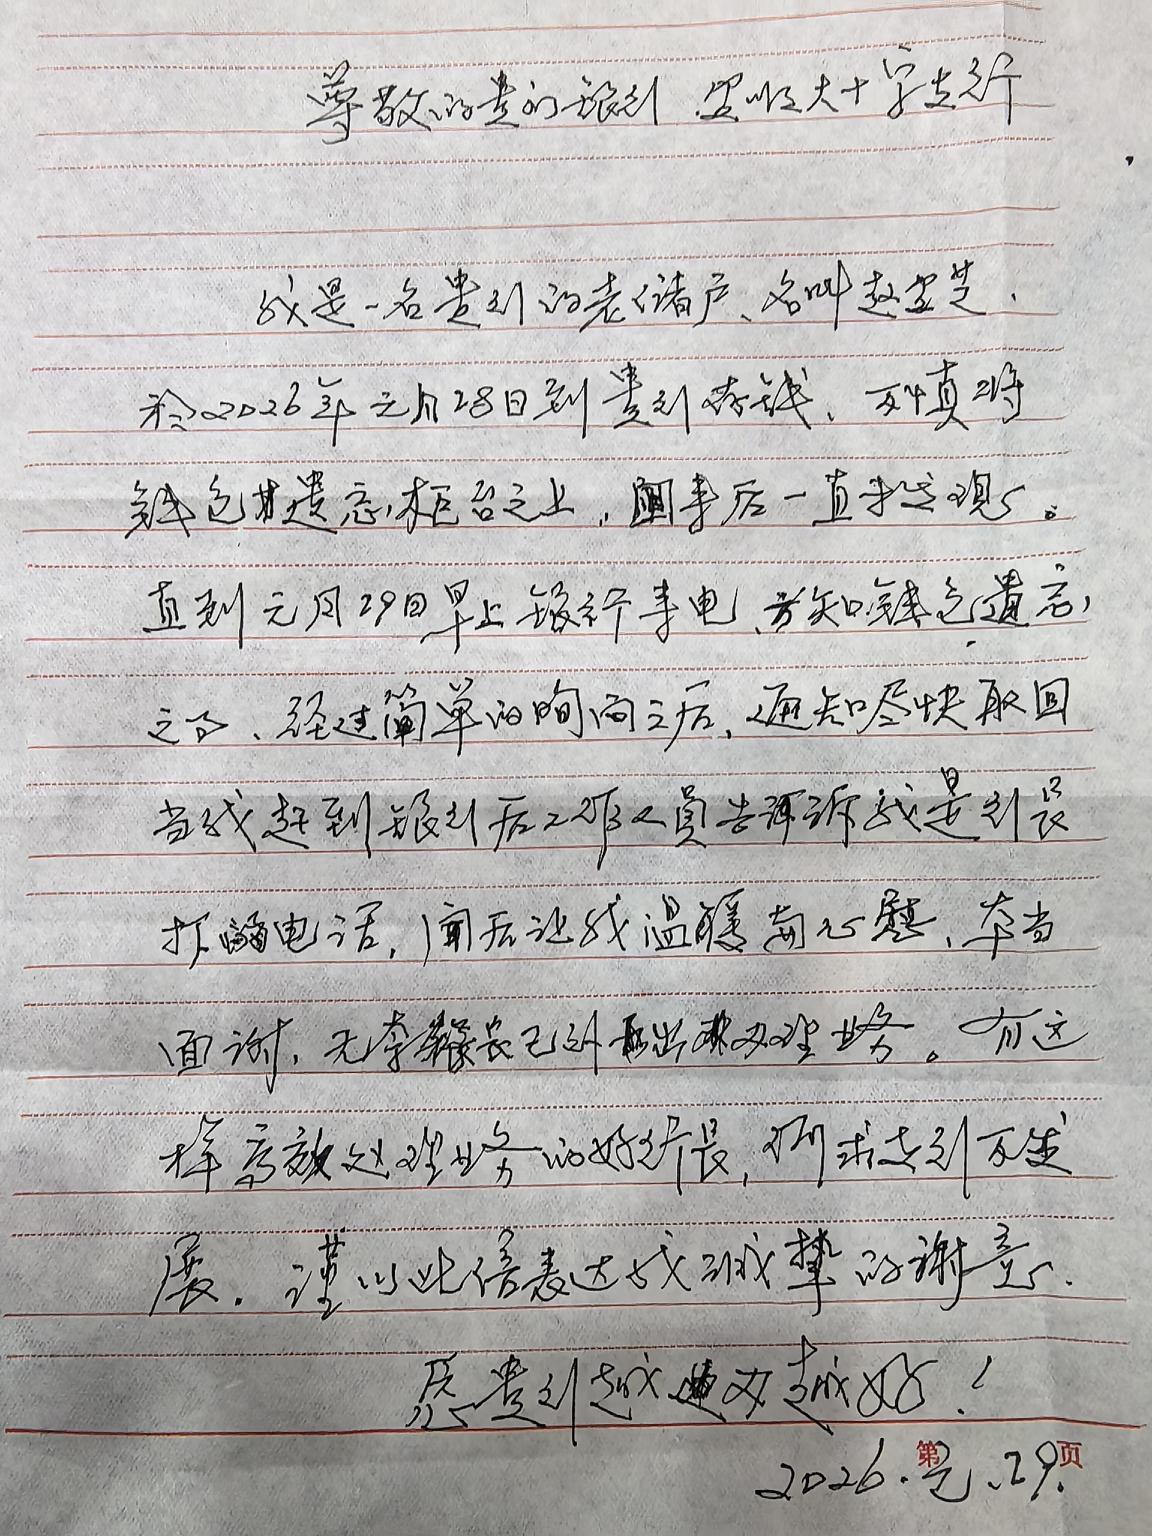 尊敬的贵州银行、安顺大十字支行
我是一名贵行的老储户、名叫赵安芝、
于2026年元月28日到贵行存钱、不慎将
钱包遗忘柜台之上，事后一直未发现。
直到元月29日早上银行来电、方知钱包遗忘
之事、经过简单的询问之后、通知尽快取回
当我赶到银行后工作人员告诉我是行长
打的电话，闻后让我温暖而心慰、本当
面谢，无奈行长已外出办理业务。有这
样高效处理业务的好行长，何求支行不发
展。谨以此信表达我诚挚的谢意、
愿贵行越办越好！
2026.元.29.
第 页